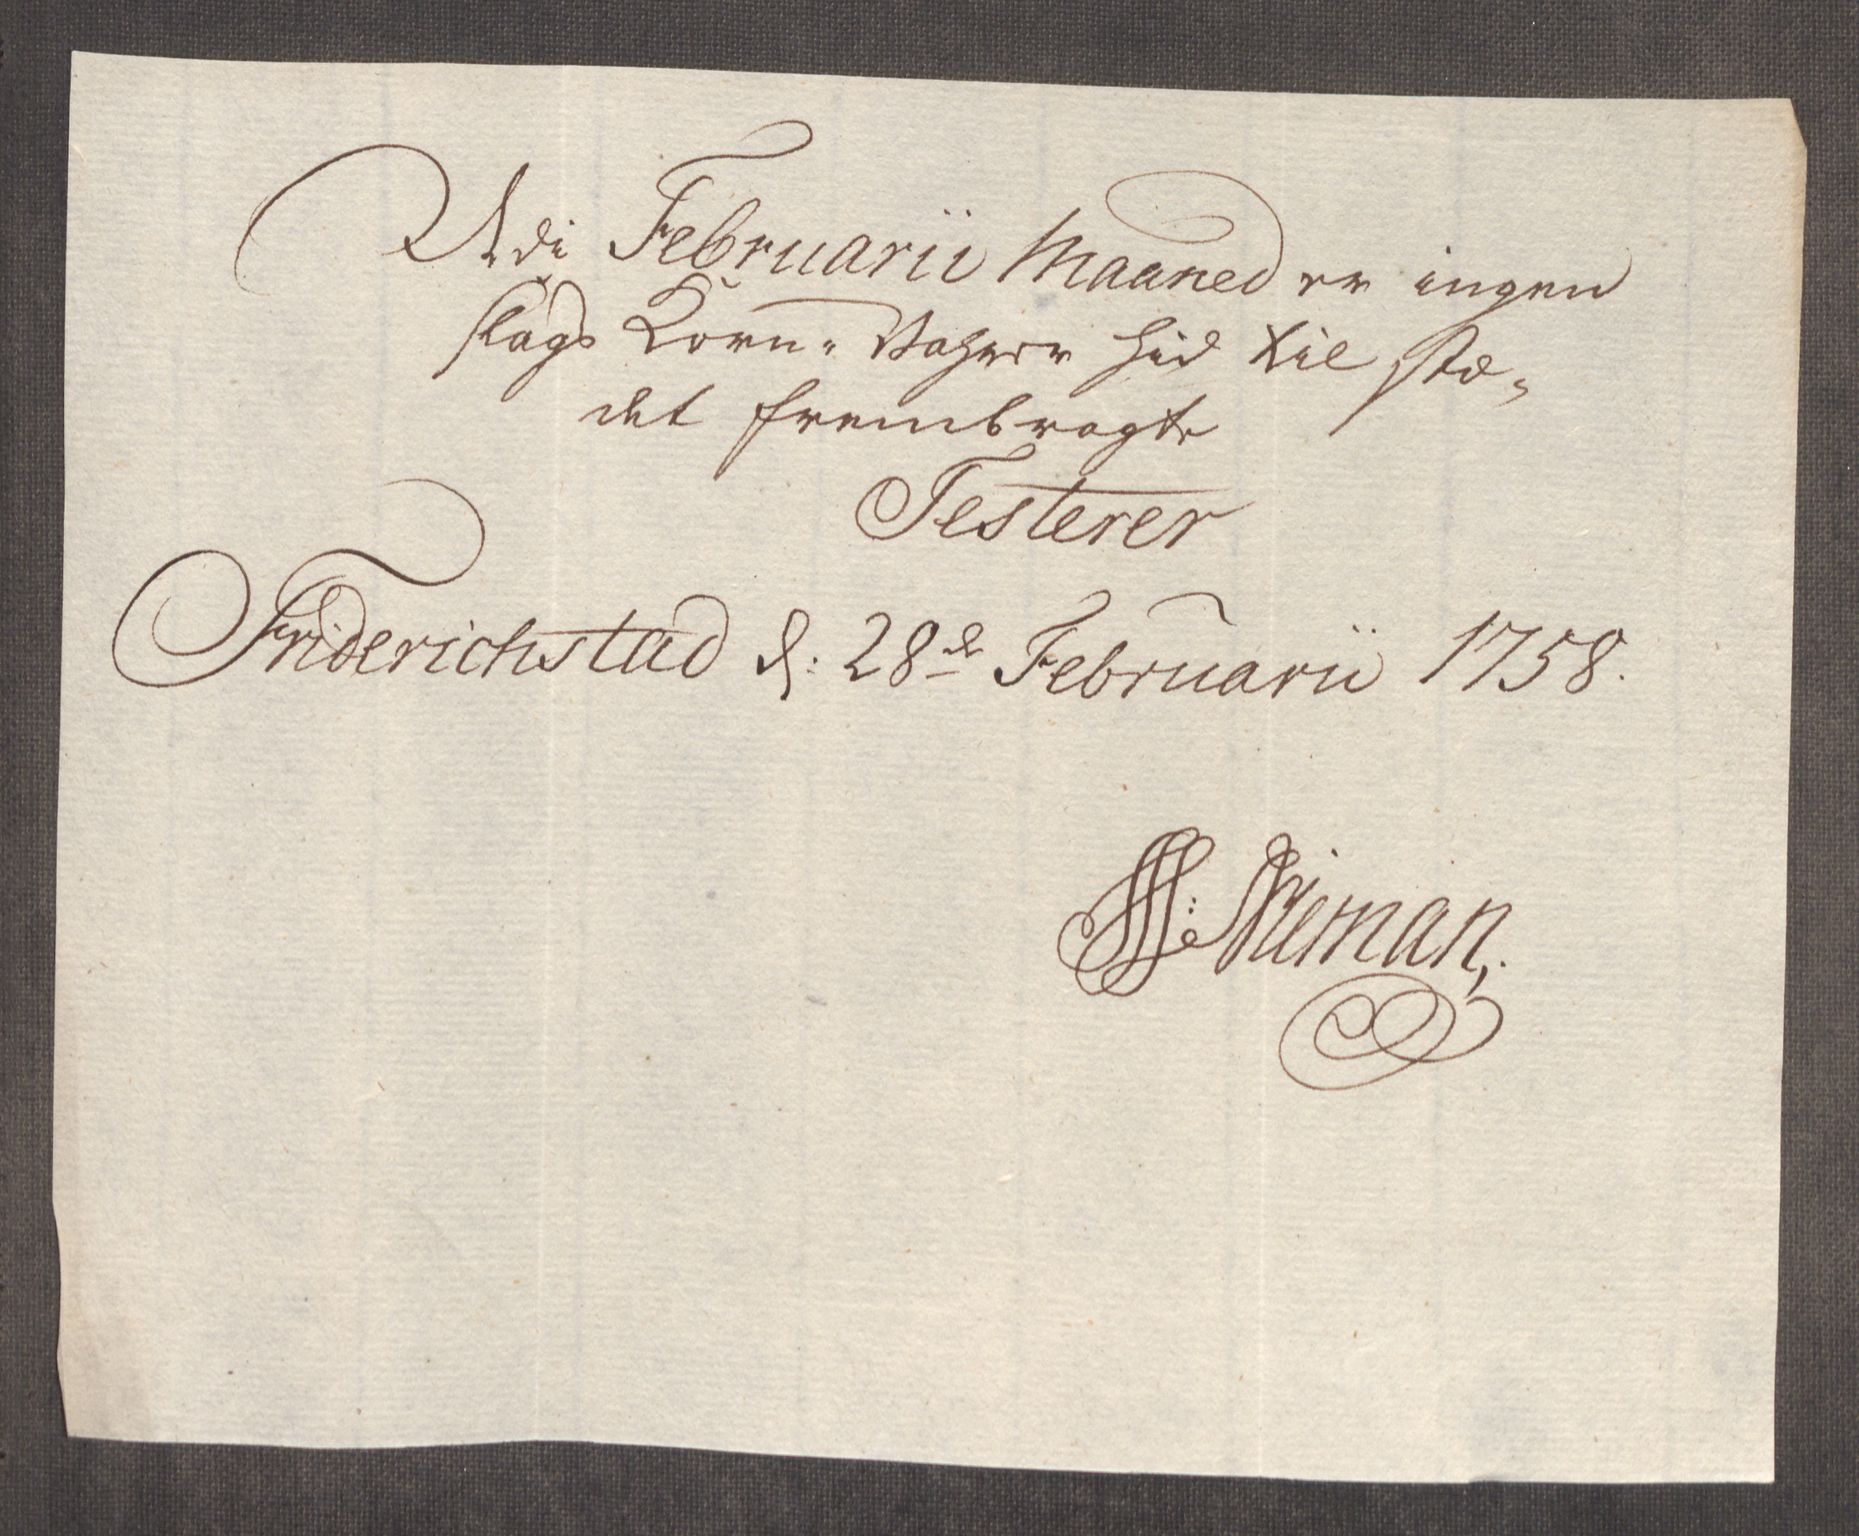 Udi Februarii Maaned er ingen
slags Korn- Vahrer hid til Stæ-
det frembragte
Testerer
Friderichstad d: 28de Februarii 1758.
Niman,